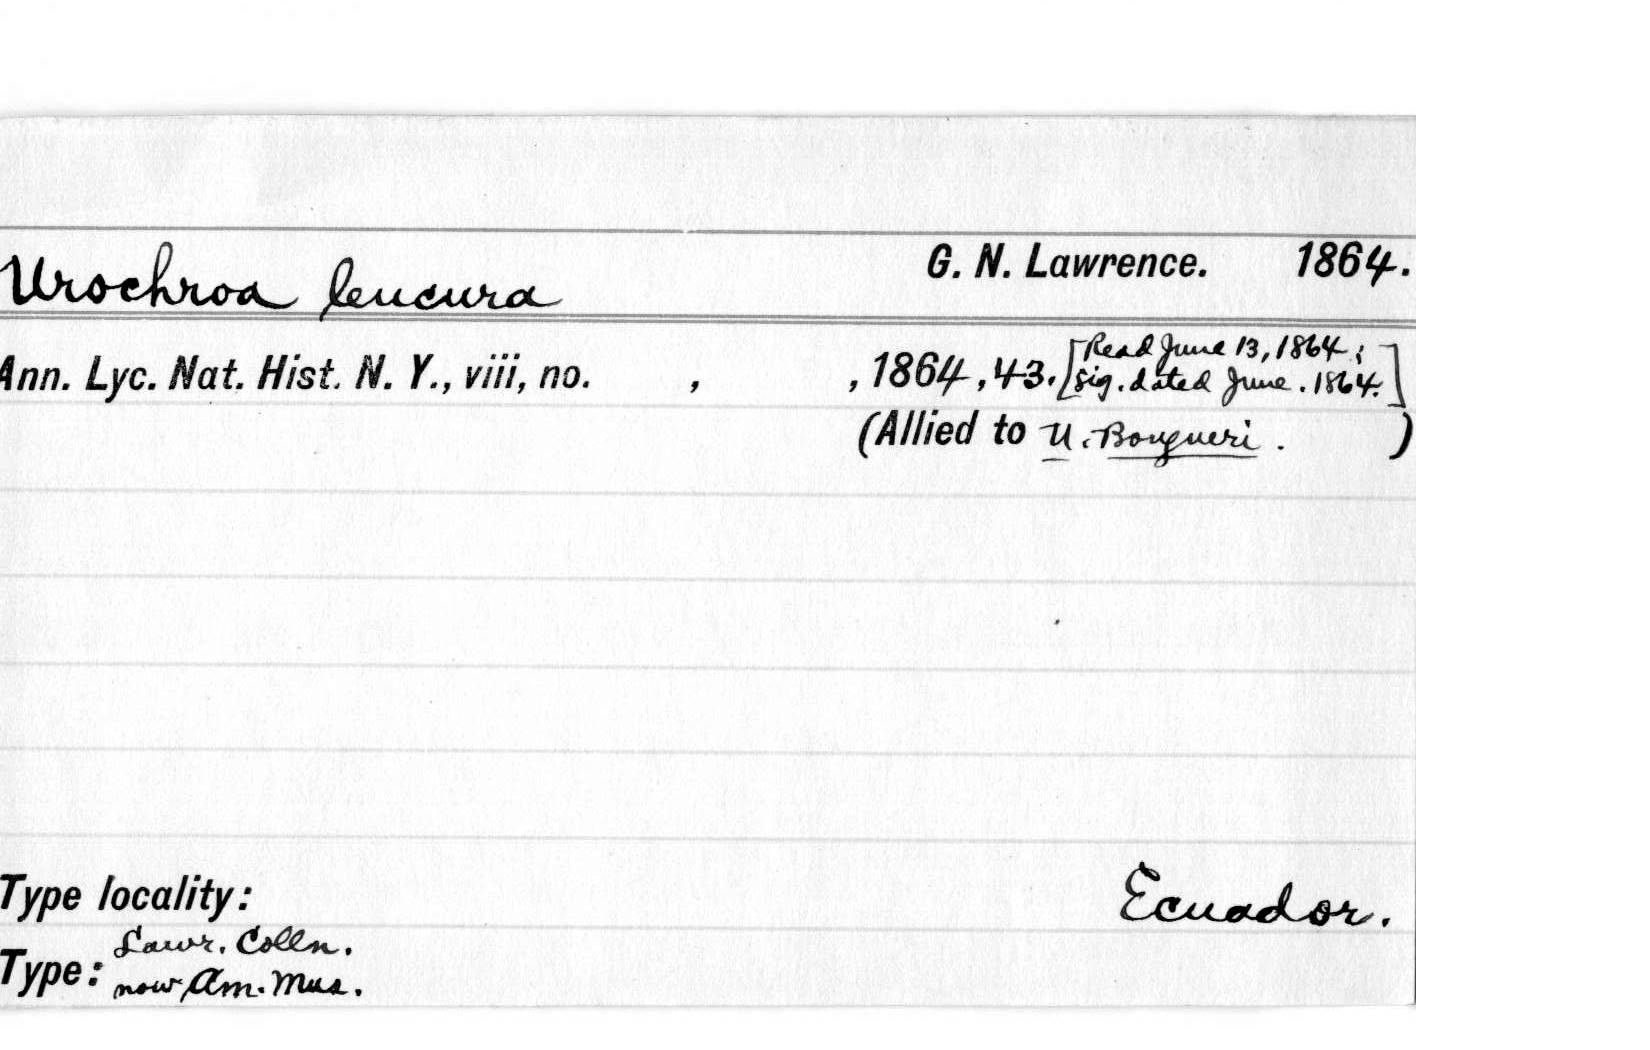 Urochroa leucura G. N. Lawrence. 1864.
Ann. Lyc. Nat. Hist. N. Y., viii, no. , , 1864, 43. [Read June 13, 1864;
sig. dated June. 1864.]
(Allied to U. Bougueri. )
Type locality: Ecuador.
Lawr. Colln.
Type: now Am. Mus.